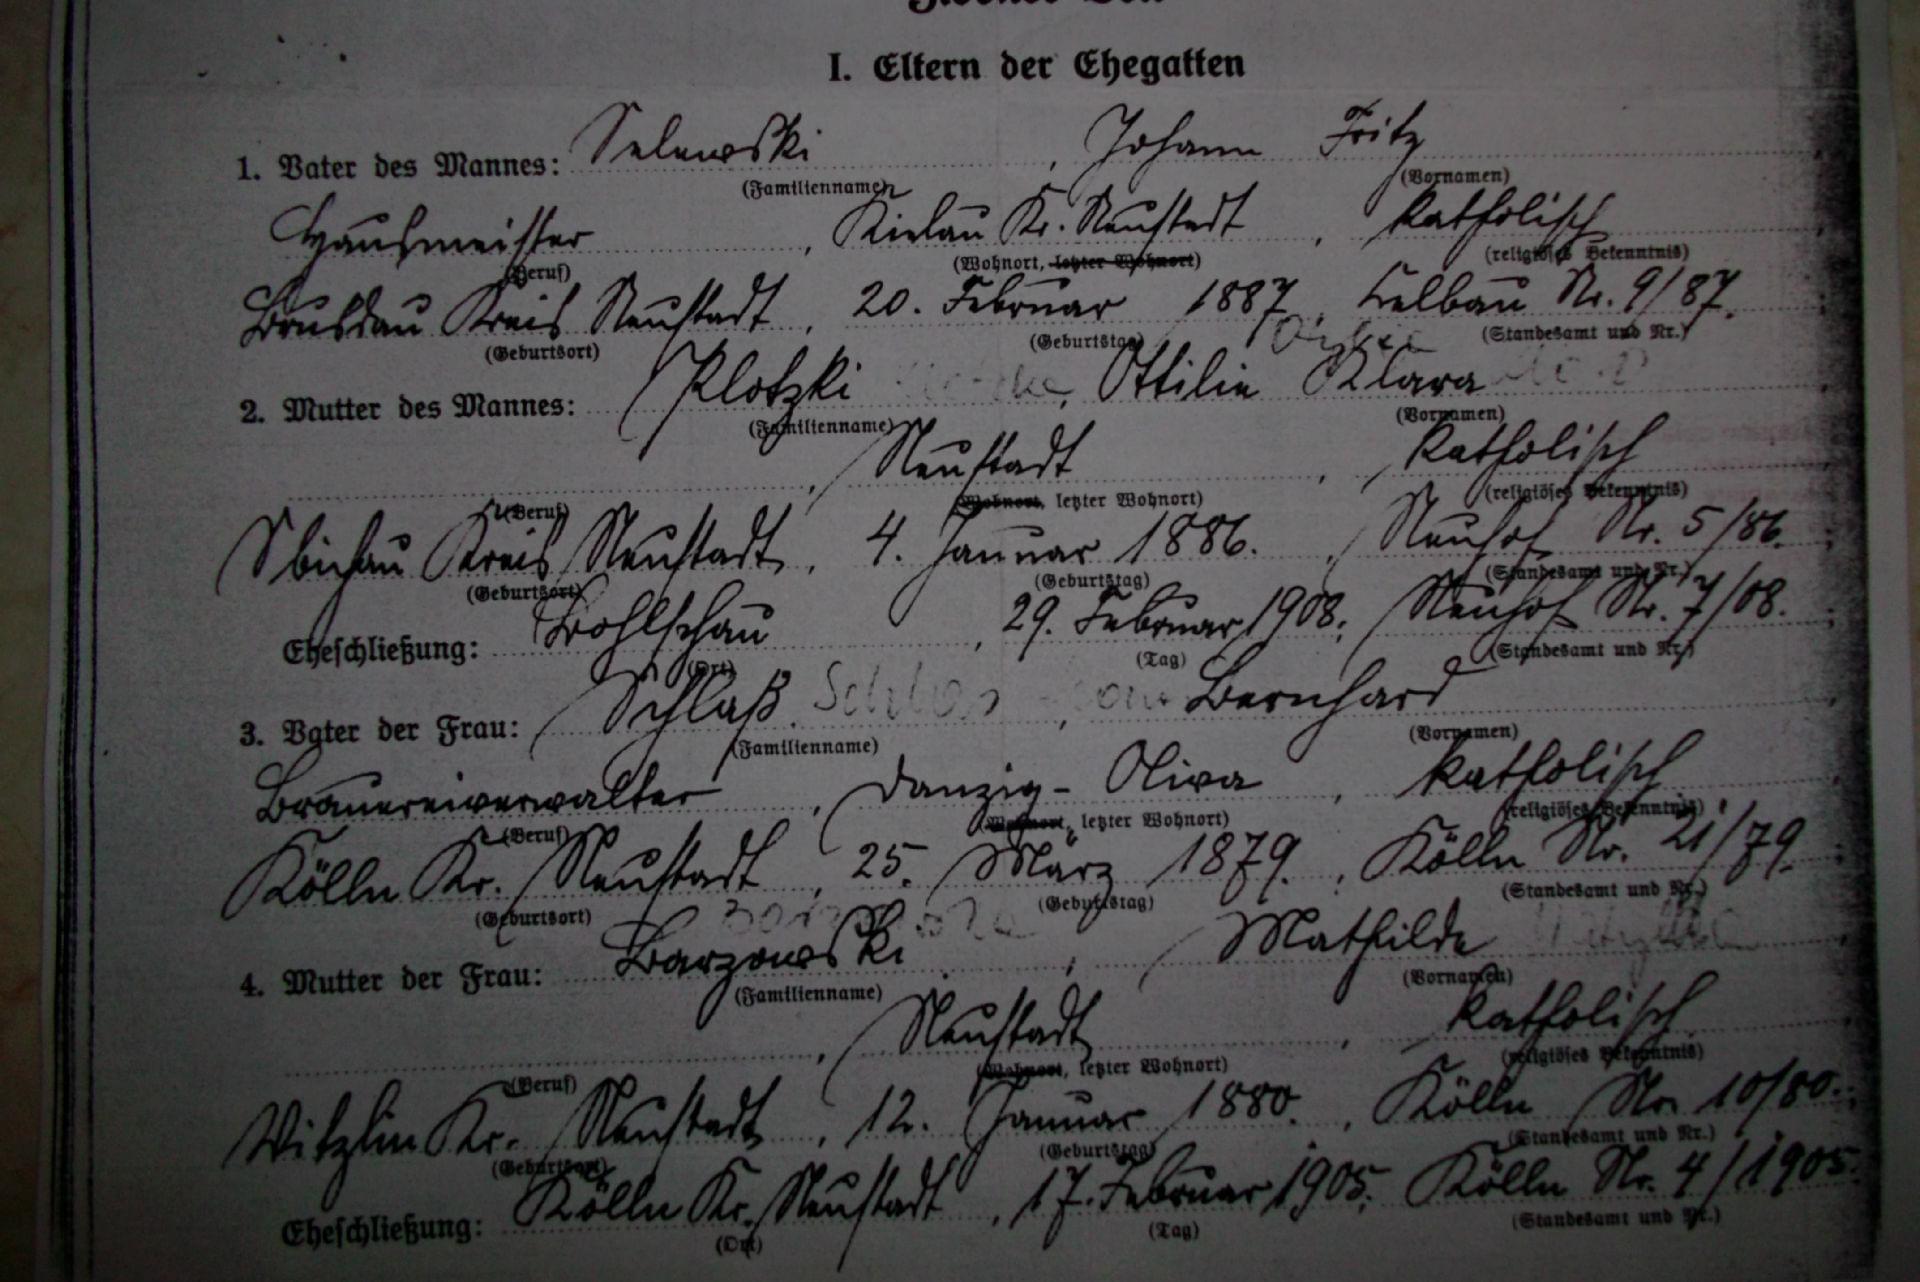 I. Eltern der Ehegatten
1. Vater des Mannes: Selewski, Johann Fritz
(Familienname) (Vornamen)
Hausmeister, Kielau Kr. Neustadt, katholisch
(Beruf) (Wohnort, letzter Wohnort) (religiöses Bekenntnis)
Brusdau Kreis Neustadt, 20. Februar 1887, Nr. 9/87.
(Geburtsort) (Geburtstag) (Standesamt und Nr.)
2. Mutter des Mannes: Klotzki, Ottilie Klara
(Familienname) (Vornamen)
Neustadt, katholisch
(Beruf) (Wohnort, letzter Wohnort) (religiöses Bekenntnis)
Sbichau Kreis Neustadt, 4. Januar 1886., Neuhof Nr. 5/86.
(Geburtsort) (Geburtstag) (Standesamt und Nr.)
Eheschließung: Bohlschau, 29. Februar 1908; Neuhof Nr. 7/08.
(Ort) (Tag) (Standesamt und Nr.)
3. Vater der Frau: Schlaß, Bernhard
(Familienname) (Vornamen)
Brauereiverwalter, Danzig-Oliva, katholisch
(Beruf) (Wohnort, letzter Wohnort) (religiöses Bekenntnis)
Kölln Kr. Neustadt, 25. März 1879., Kölln Nr. 21/79.
(Geburtsort) (Geburtstag) (Standesamt und Nr.)
4. Mutter der Frau: Barzowski, Mathilde
(Familienname) (Vornamen)
Neustadt, katholisch
(Beruf) (Wohnort, letzter Wohnort) (religiöses Bekenntnis)
Witzlin Kr. Neustadt, 12. Januar 1880., Kölln Nr. 10/80.
(Geburtsort) (Geburtstag) (Standesamt und Nr.)
Eheschließung: Kölln Kr. Neustadt, 17. Februar 1905; Kölln Nr. 4/1905.
(Ort) (Tag) (Standesamt und Nr.)